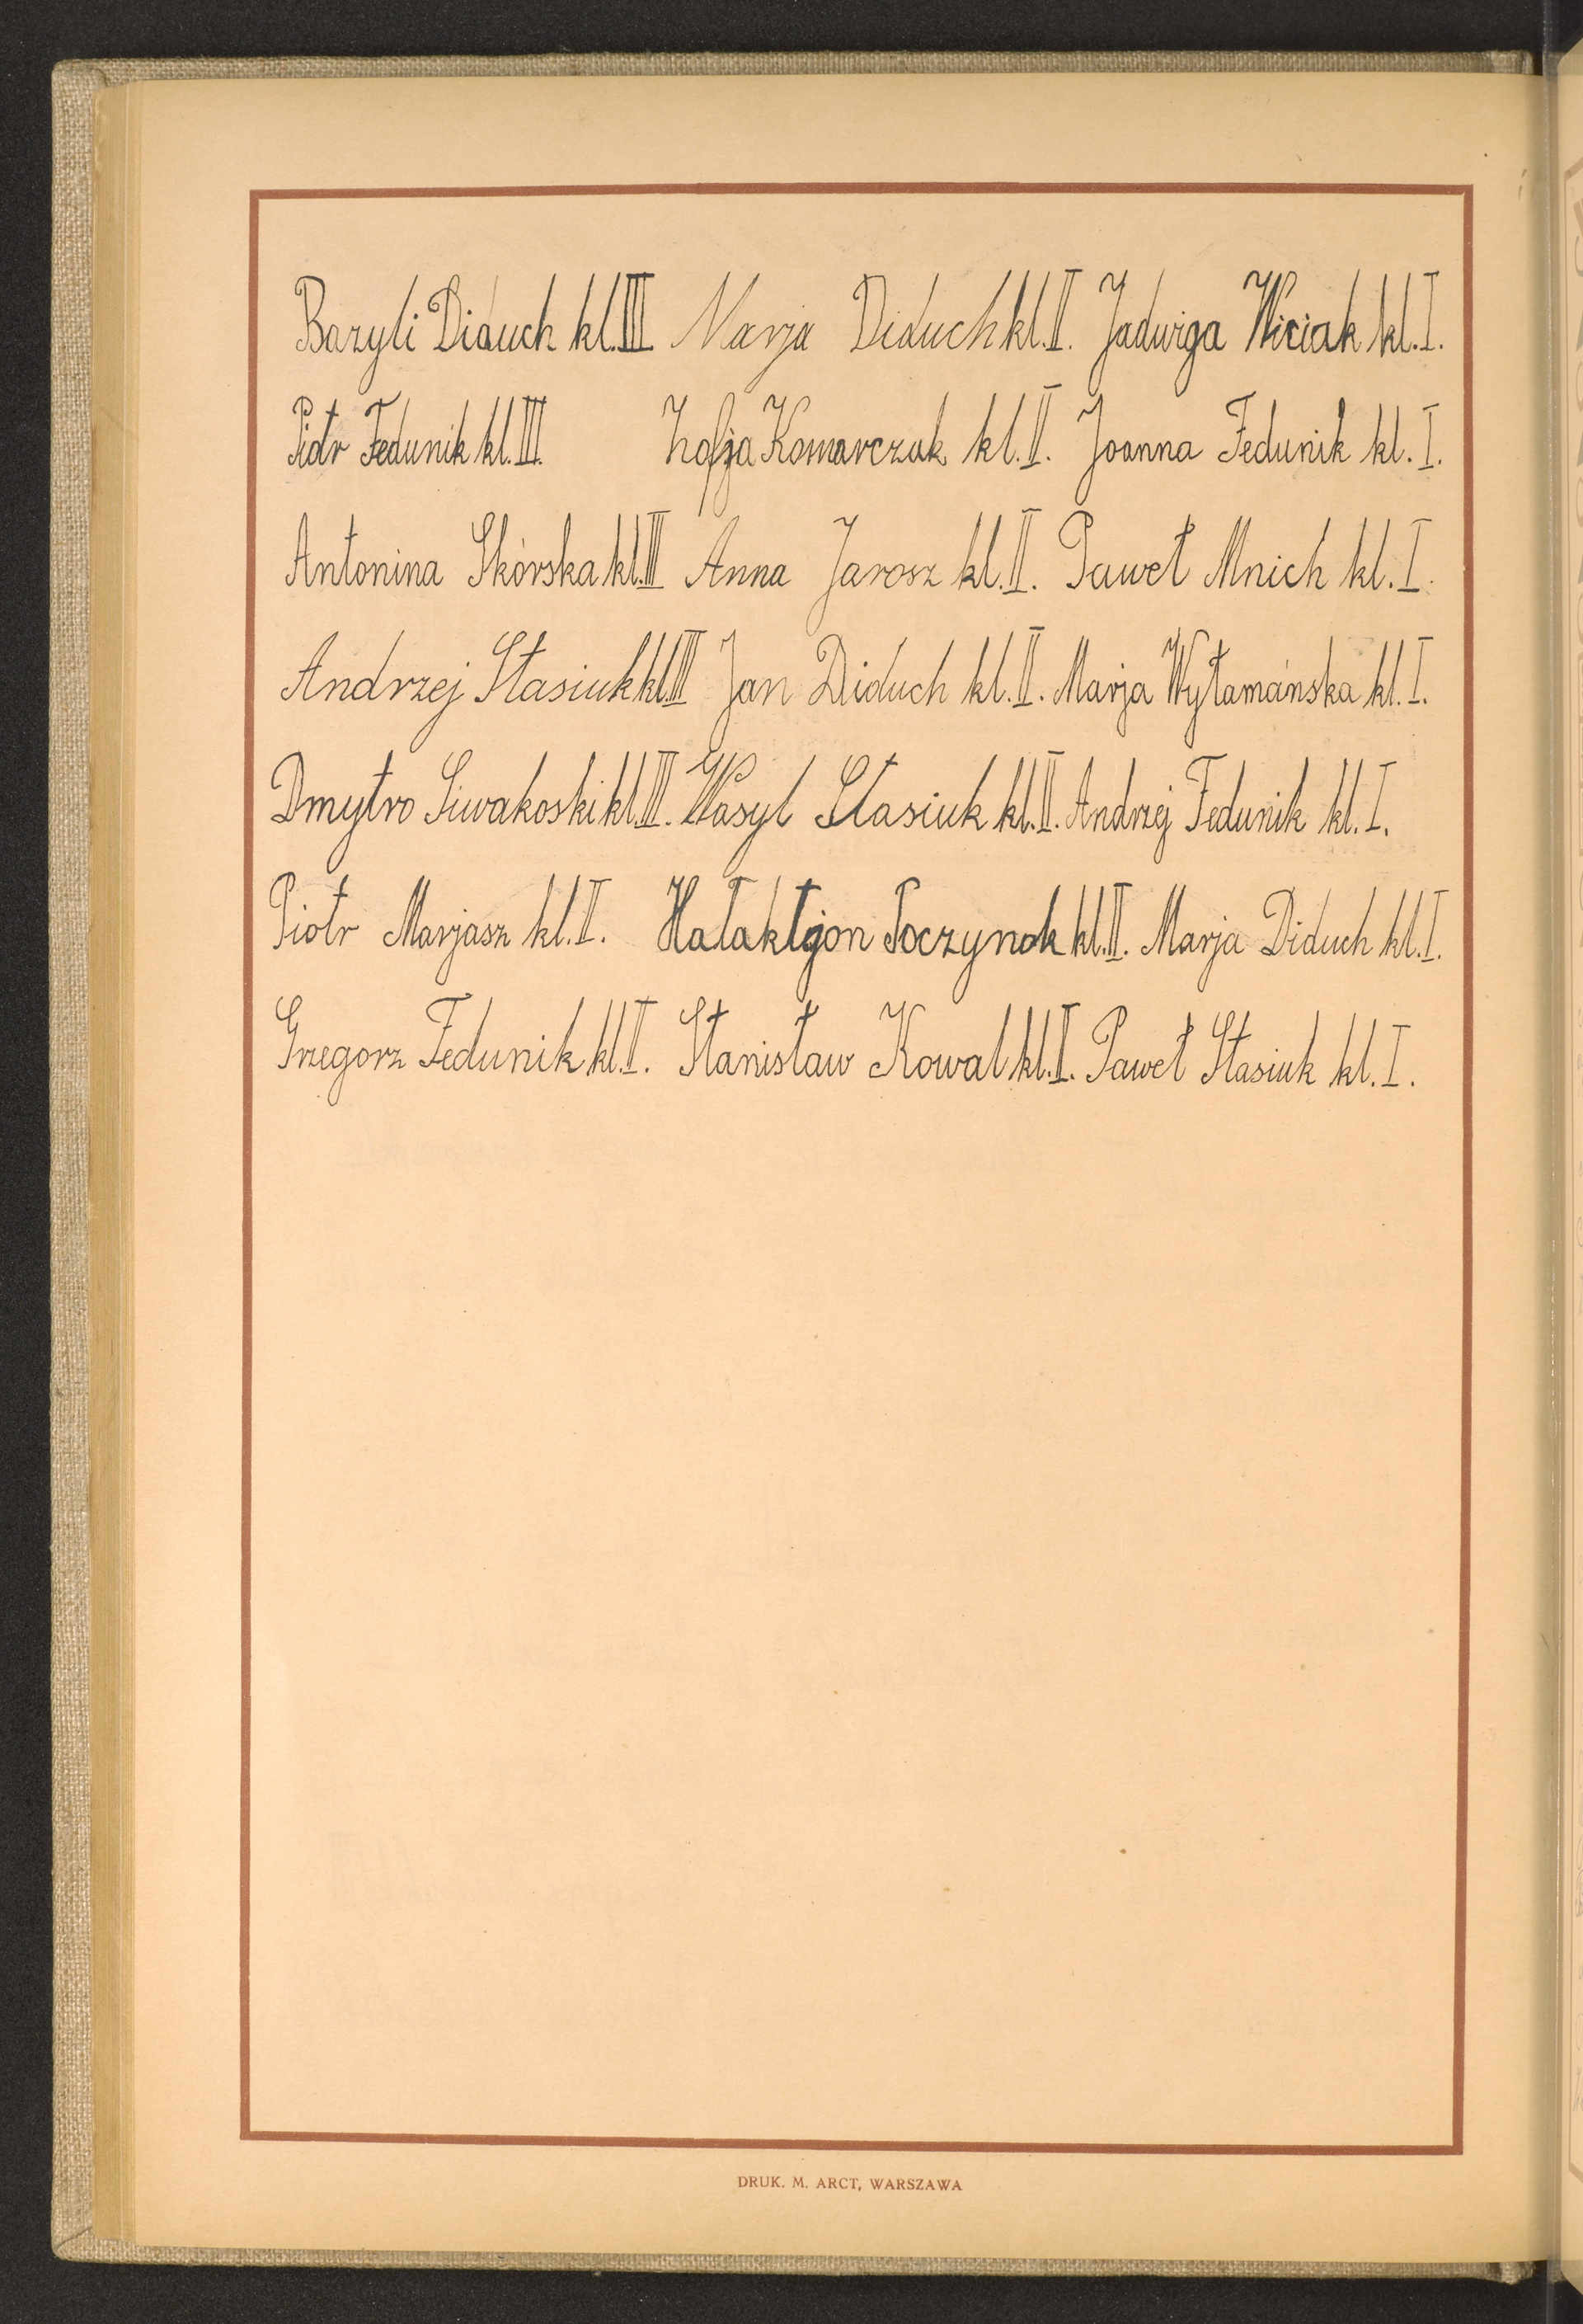 Bazyli Diduch kl. III Marja Diduch kl. II. Jadwiga Wiciak kl. I.
Piotr Fedunik kl. III. Zofja Komarczuk kl. II. Joanna Fedunik kl. I.
Antonina Skórska kl. III Anna Jarosz kl. II. Paweł Mnich kl. I.
Andrzej Stasiuk kl. III Jan Diduch kl. II. Marja Wyłamańska kl. I.
Dmytro Siwakoski kl. III. Wasyl Stasiuk kl. II. Andrzej Fedunik kl. I.
Piotr Marjasz kl. II. Hałaktjon Poczynok kl. II. Marja Diduch kl. I.
Grzegorz Fedunik kl. II. Stanisław Kowal kl. II. Paweł Stasiuk kl. I.
DRUK. M. ARCT, WARSZAWA